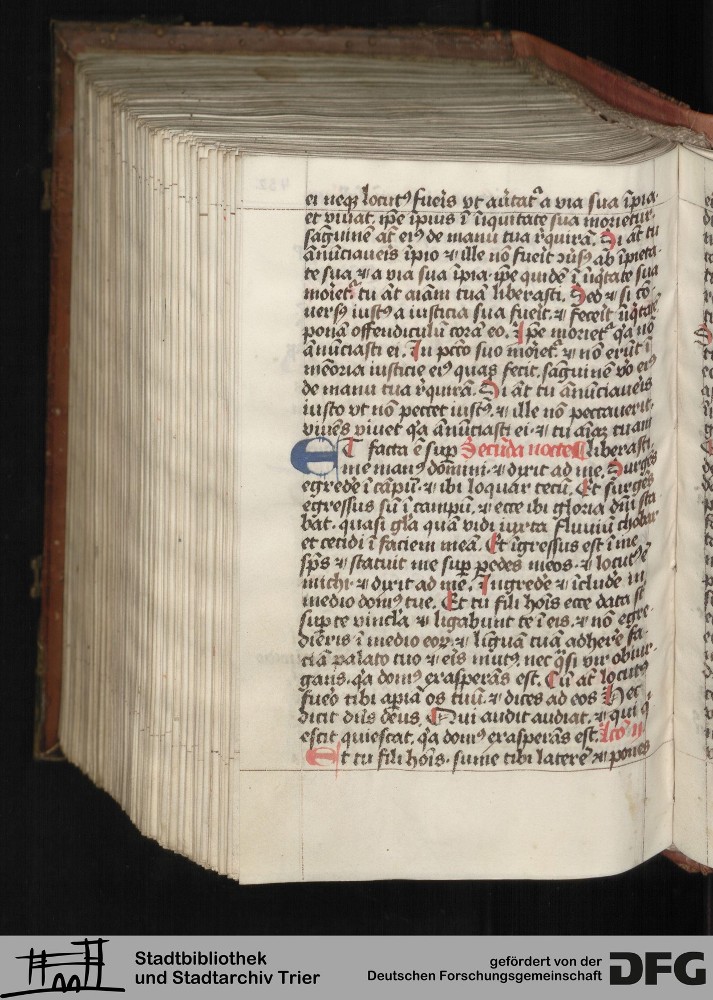 ei neqȝ locutꝰ fueis vt aūtat᷑ a via sua īpia
et viuat. ip̄e īpius ī iniquitate sua morietur.
sāguinē at̄ eiꝰ de manu tua r̄quirā. Si at̄ tu
ānūciaueis īpio ⁊ ille nō fueit ↄūsꝰ ab īpieta-
te sua ⁊ a via sua īpia. ip̄e quidē ī iīqtate sua
moiet᷑. tu at̄ aīam tuā liberasti. Sed ⁊ si cō-
uersꝰ iustꝰ a iusticia sua fueit. ⁊ feceit iīqtatē
ponā offendiculū corā eo. Ipe moriet᷑ qa nō
ānūciasti ei. In pctō suo moiet᷑. ⁊ nō erūt ī
mēoria iusticie eiꝰ quas fecit. sāguinē v̄o eiꝰ
de manu tua r̄quirā. Si at̄ tu ānūciaueis
iusto vt nō peccet iustꝰ. ⁊ ille nō peccauerit.
viuēs viuet qa ānūciasti ei. ⁊ tu aīaȝ tuam
ET facta ē sup Secūda nocte liberasti.
me manꝰ domini. ⁊ dixit ad me. Surgēs
egrede ī cāpū. ⁊ ibi loquar tecū. Et surgēs
egressus sū ī campū. ⁊ ecce ibi gloria dn̄i sta
bat. quasi gl̄a quā vidi iuxta fluuiū chobar
et cecidi ī faciem meā. Et īgressus est ī me
sp̄s ⁊ statuit me sup pedes meos. ⁊ locutꝰ ē
michi. ⁊ dixit ad me. Ingrede ⁊ īclude ī
medio domꝰ tue. Et tu fili hoīs ecce data st̄
sup te vincl̄a ⁊ ligabunt te ī eis. ⁊ nō egre-
dieris ī medio eoꝝ. ⁊ liguā tuā adhere fa-
ciā palato tuo ⁊ eis mutꝰ. nec q̄si vir obiur-
gans. qa domꝰ exasperās est. Cū at̄ locutꝰ
fueo tibi apiā os tuū. ⁊ dices ad eos Hec
dicit dn̄s deus. Qui audit audiat. ⁊ qui q̄
escit quiescat. qa domꝰ exasperās est. lc̄o ii
Et tu fili hoīs. sume tibi laterē ⁊ pones
Stadtbibliothek
und Stadtarchiv Trier
gefördert von der
Deutschen Forschungsgemeinschaft
DFG